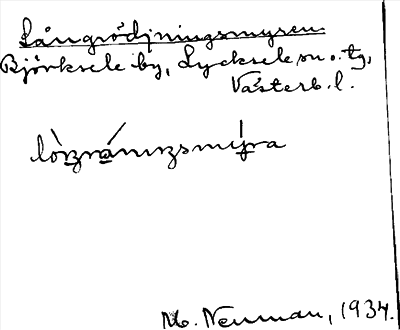 Långrödjningsmyren
Björksele by, Lycksele sn o. tg,
Västerb. l.
M. Neuman, 1934.